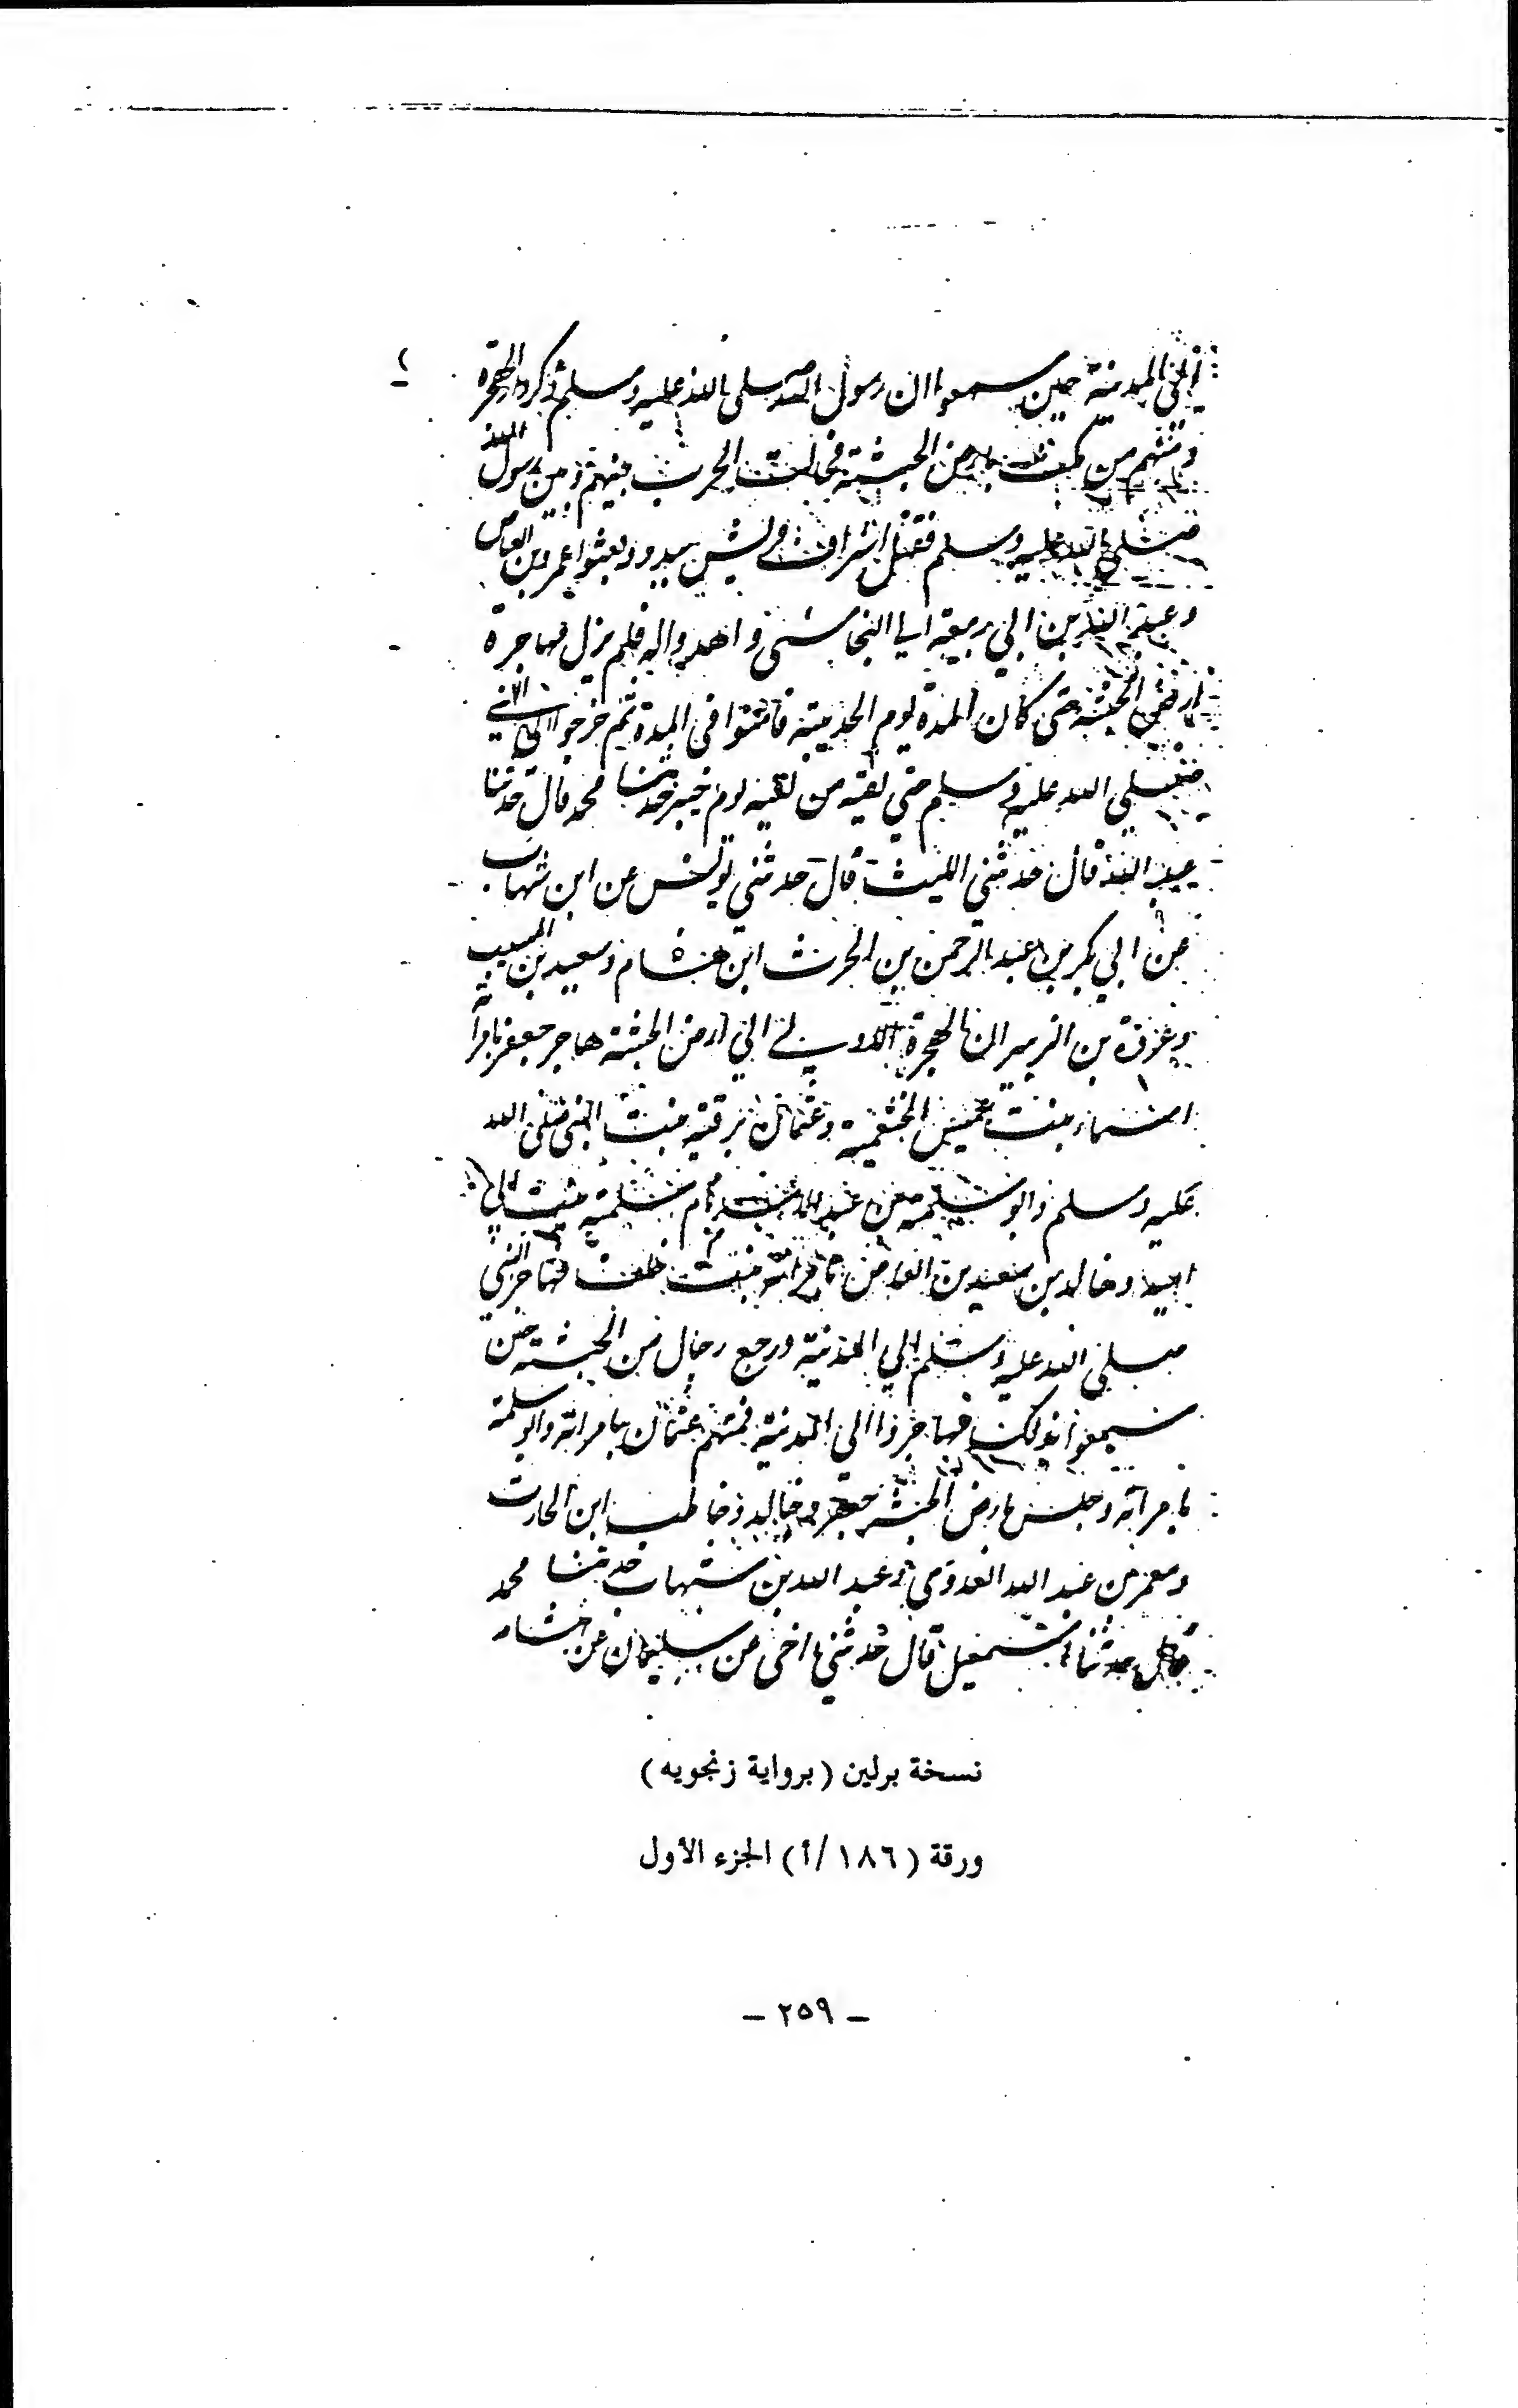 الي المدينة حين سمعوا ان رسول الله صلى الله عليه وسلم ذكر دار الهجرة
ومنهم من مكث بارض الحبشة فحالت الحرب بينهم وبين رسول الله
صلى الله عليه وسلم فقتل اشراف قريش ببدر وبعثوا عمرو بن العاص
وعبد الله بن ابي ربيعة الى النجاشى واهدوا اليه فلم يزل مهاجرة
ارض الحبشة حتى كان المدة يوم الحديبية فامنوا في المدة ثم خرجوا الى النبي
صلى الله عليه وسلم حتي لقيه من لقيه يوم خيبر حدثنا محمد قال حدثنا
عبد الله قال حدثني الليث قال حدثني يونس عن ابن شهاب
عن ابي بكر بن عبد الرحمن بن الحرث ابن هشام وسعيد بن المسيب
وعروة بن الزبير ان الهجرة الاولى الي ارض الحبشة هاجر جعفر بامرأ
اسماء بنت عميس الخثعمية وعثمان برقية بنت النبي صلى الله
عليه وسلم وابو سلمة بن عبد الاسد بام سلمة بنت ابي
امية وخالد بن سعيد بن العاص بامراته بنت خلف فهاجر النبي
صلى الله عليه وسلم الي المدينة ورجع رجال من الحبشة حين
سمعوا بذلك فهاجروا الي المدينة فمنهم عثمان بامراته وابو سلمة
بامراته وحبس بارض الحبشة جعفر وخالد وحاطب ابن الحارث
ومعمر بن عبد الله العدوى وعبد الله بن شهاب حدثنا محمد
قال حدثنا اسمعيل قال حدثني اخى عن سليمان عن
نسخة برلين (برواية زنجويه)
ورقة (١٨٦/أ) الجزء الأول
– ٢٥٩ –